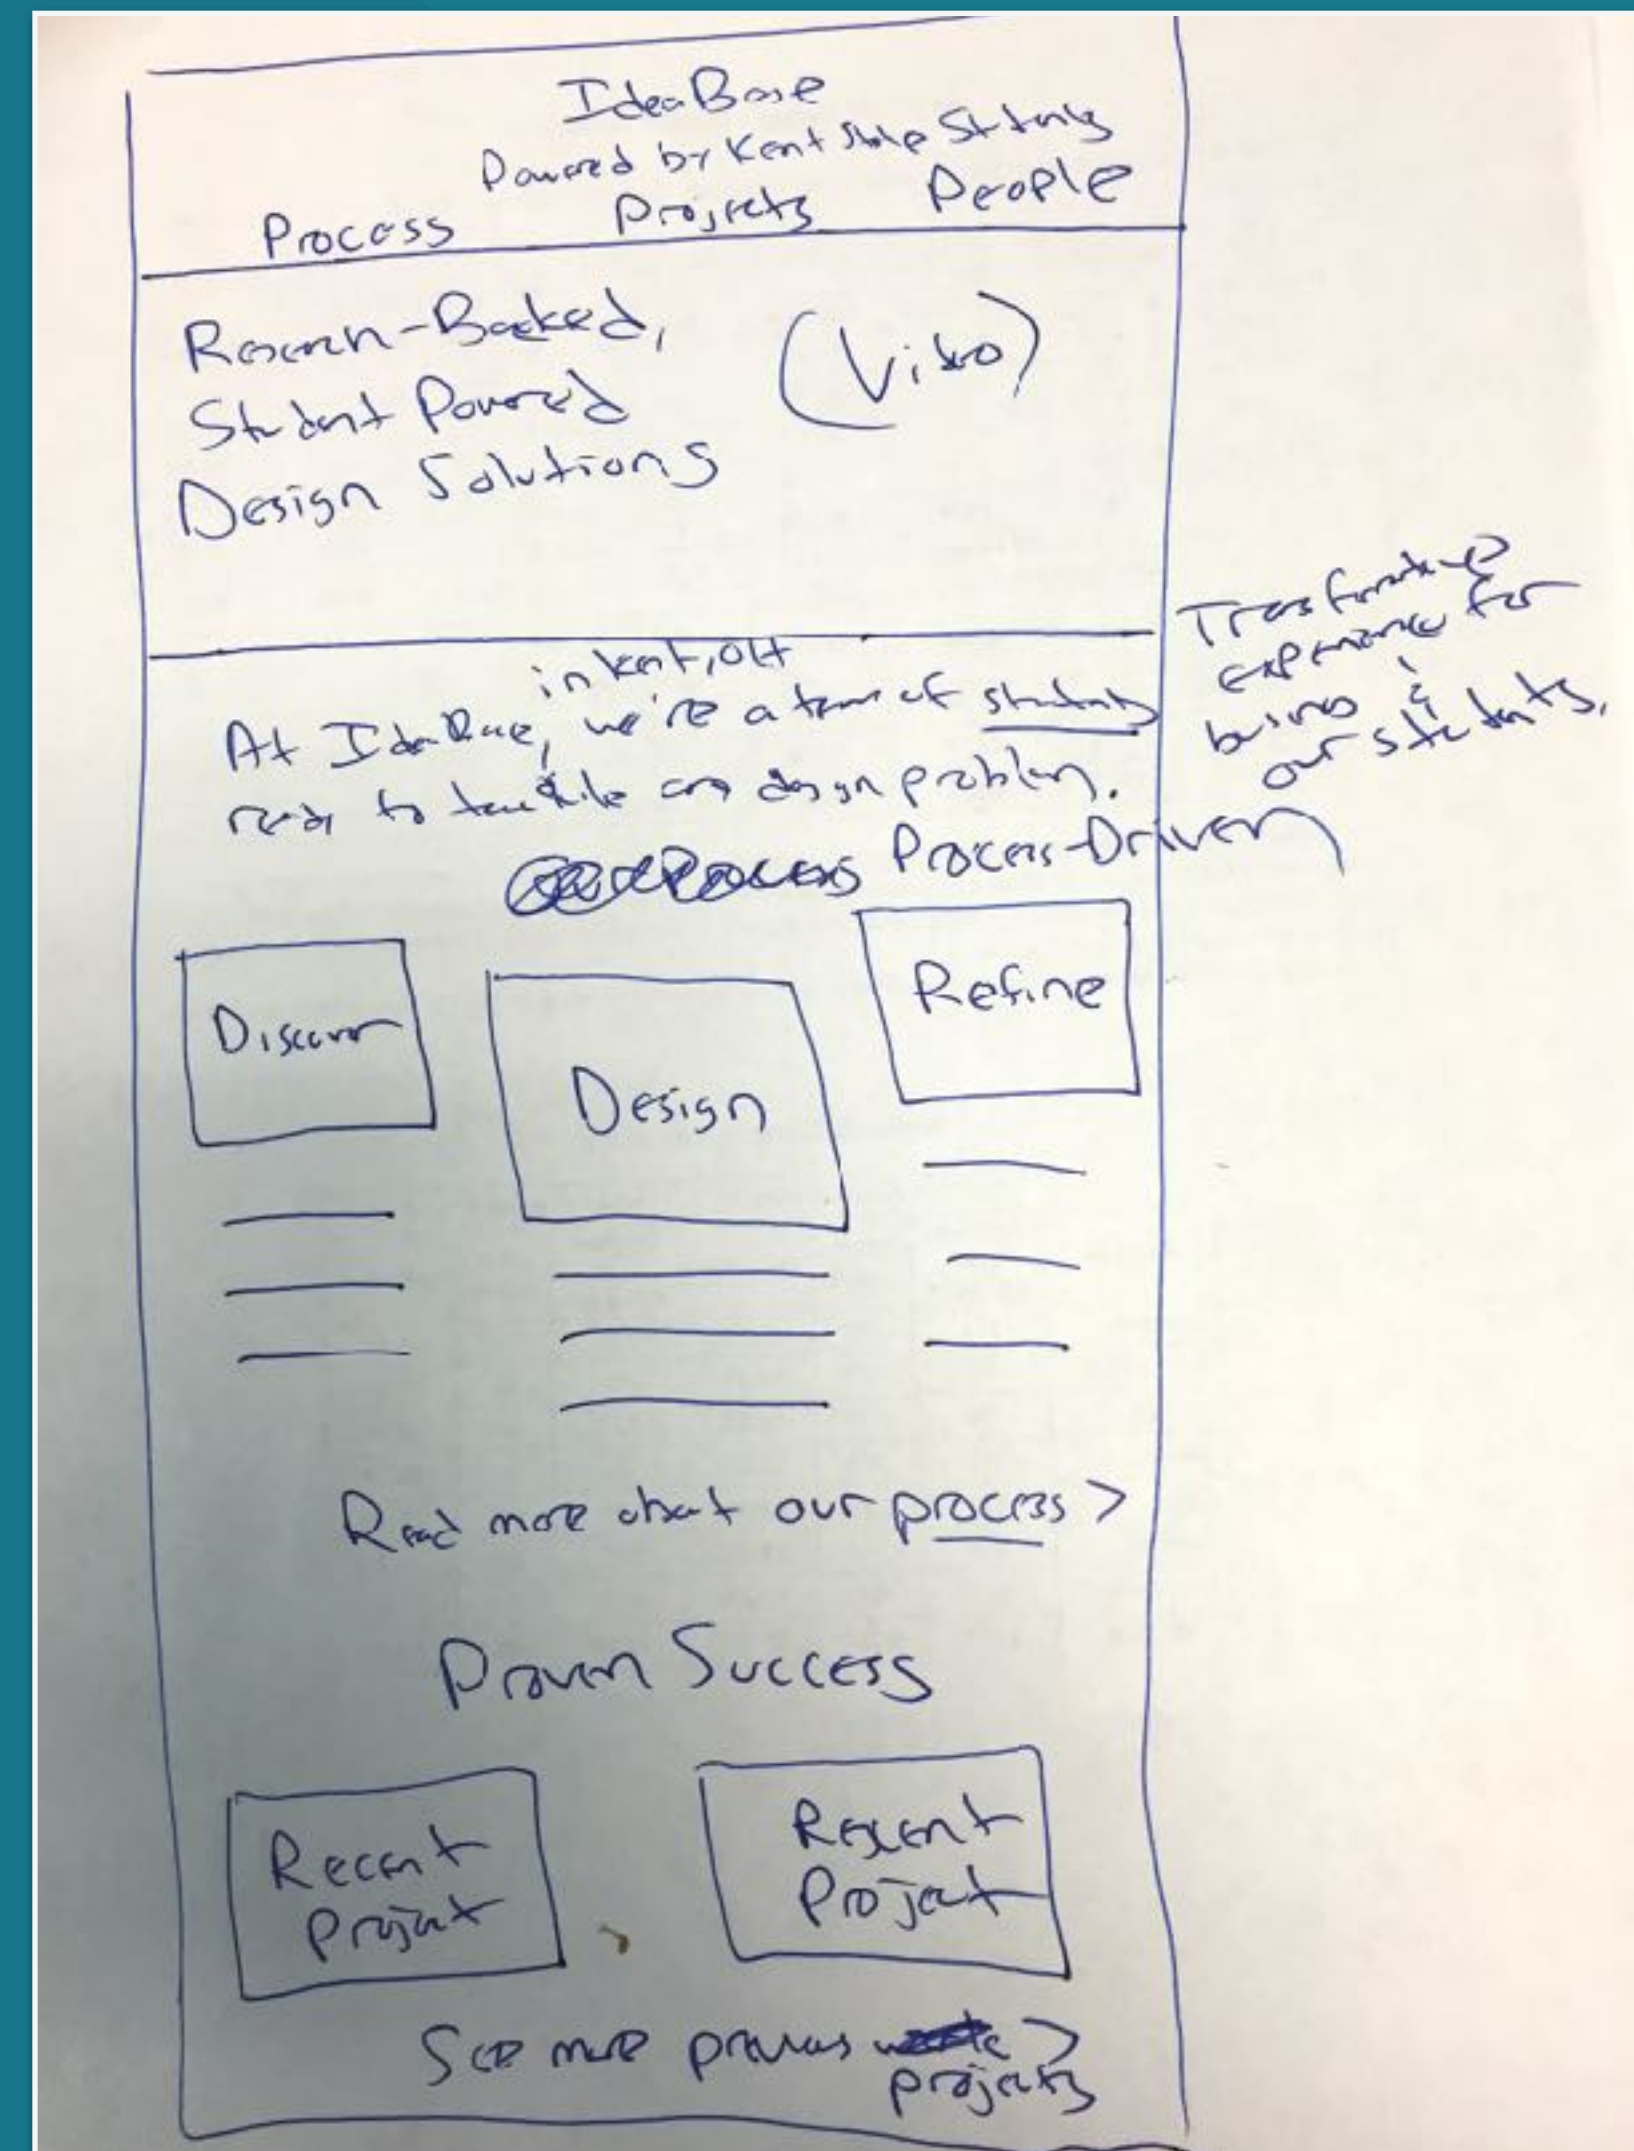 IdeaBase
Powered by Kent State Students
Process Projects People
Research-Backed,
Student Powered
Design Solutions
(Video)
in Kent, OH
At IdeaBase, we're a team of students
ready to tackle any design problem.
Transformative
experience for
business &
our students.
Process Process-Driven
Discover
Design
Refine
Read more about our process >
Proven Success
Recent
Project
Recent
Project
See more previous >
projects